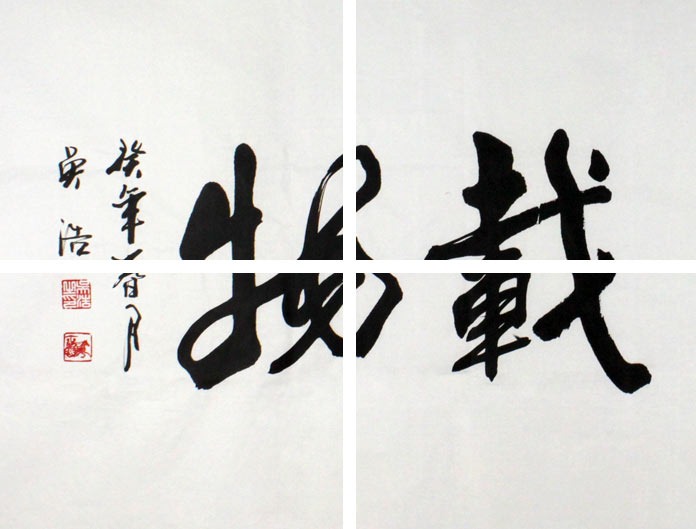 載物
癸年春月
吳浩